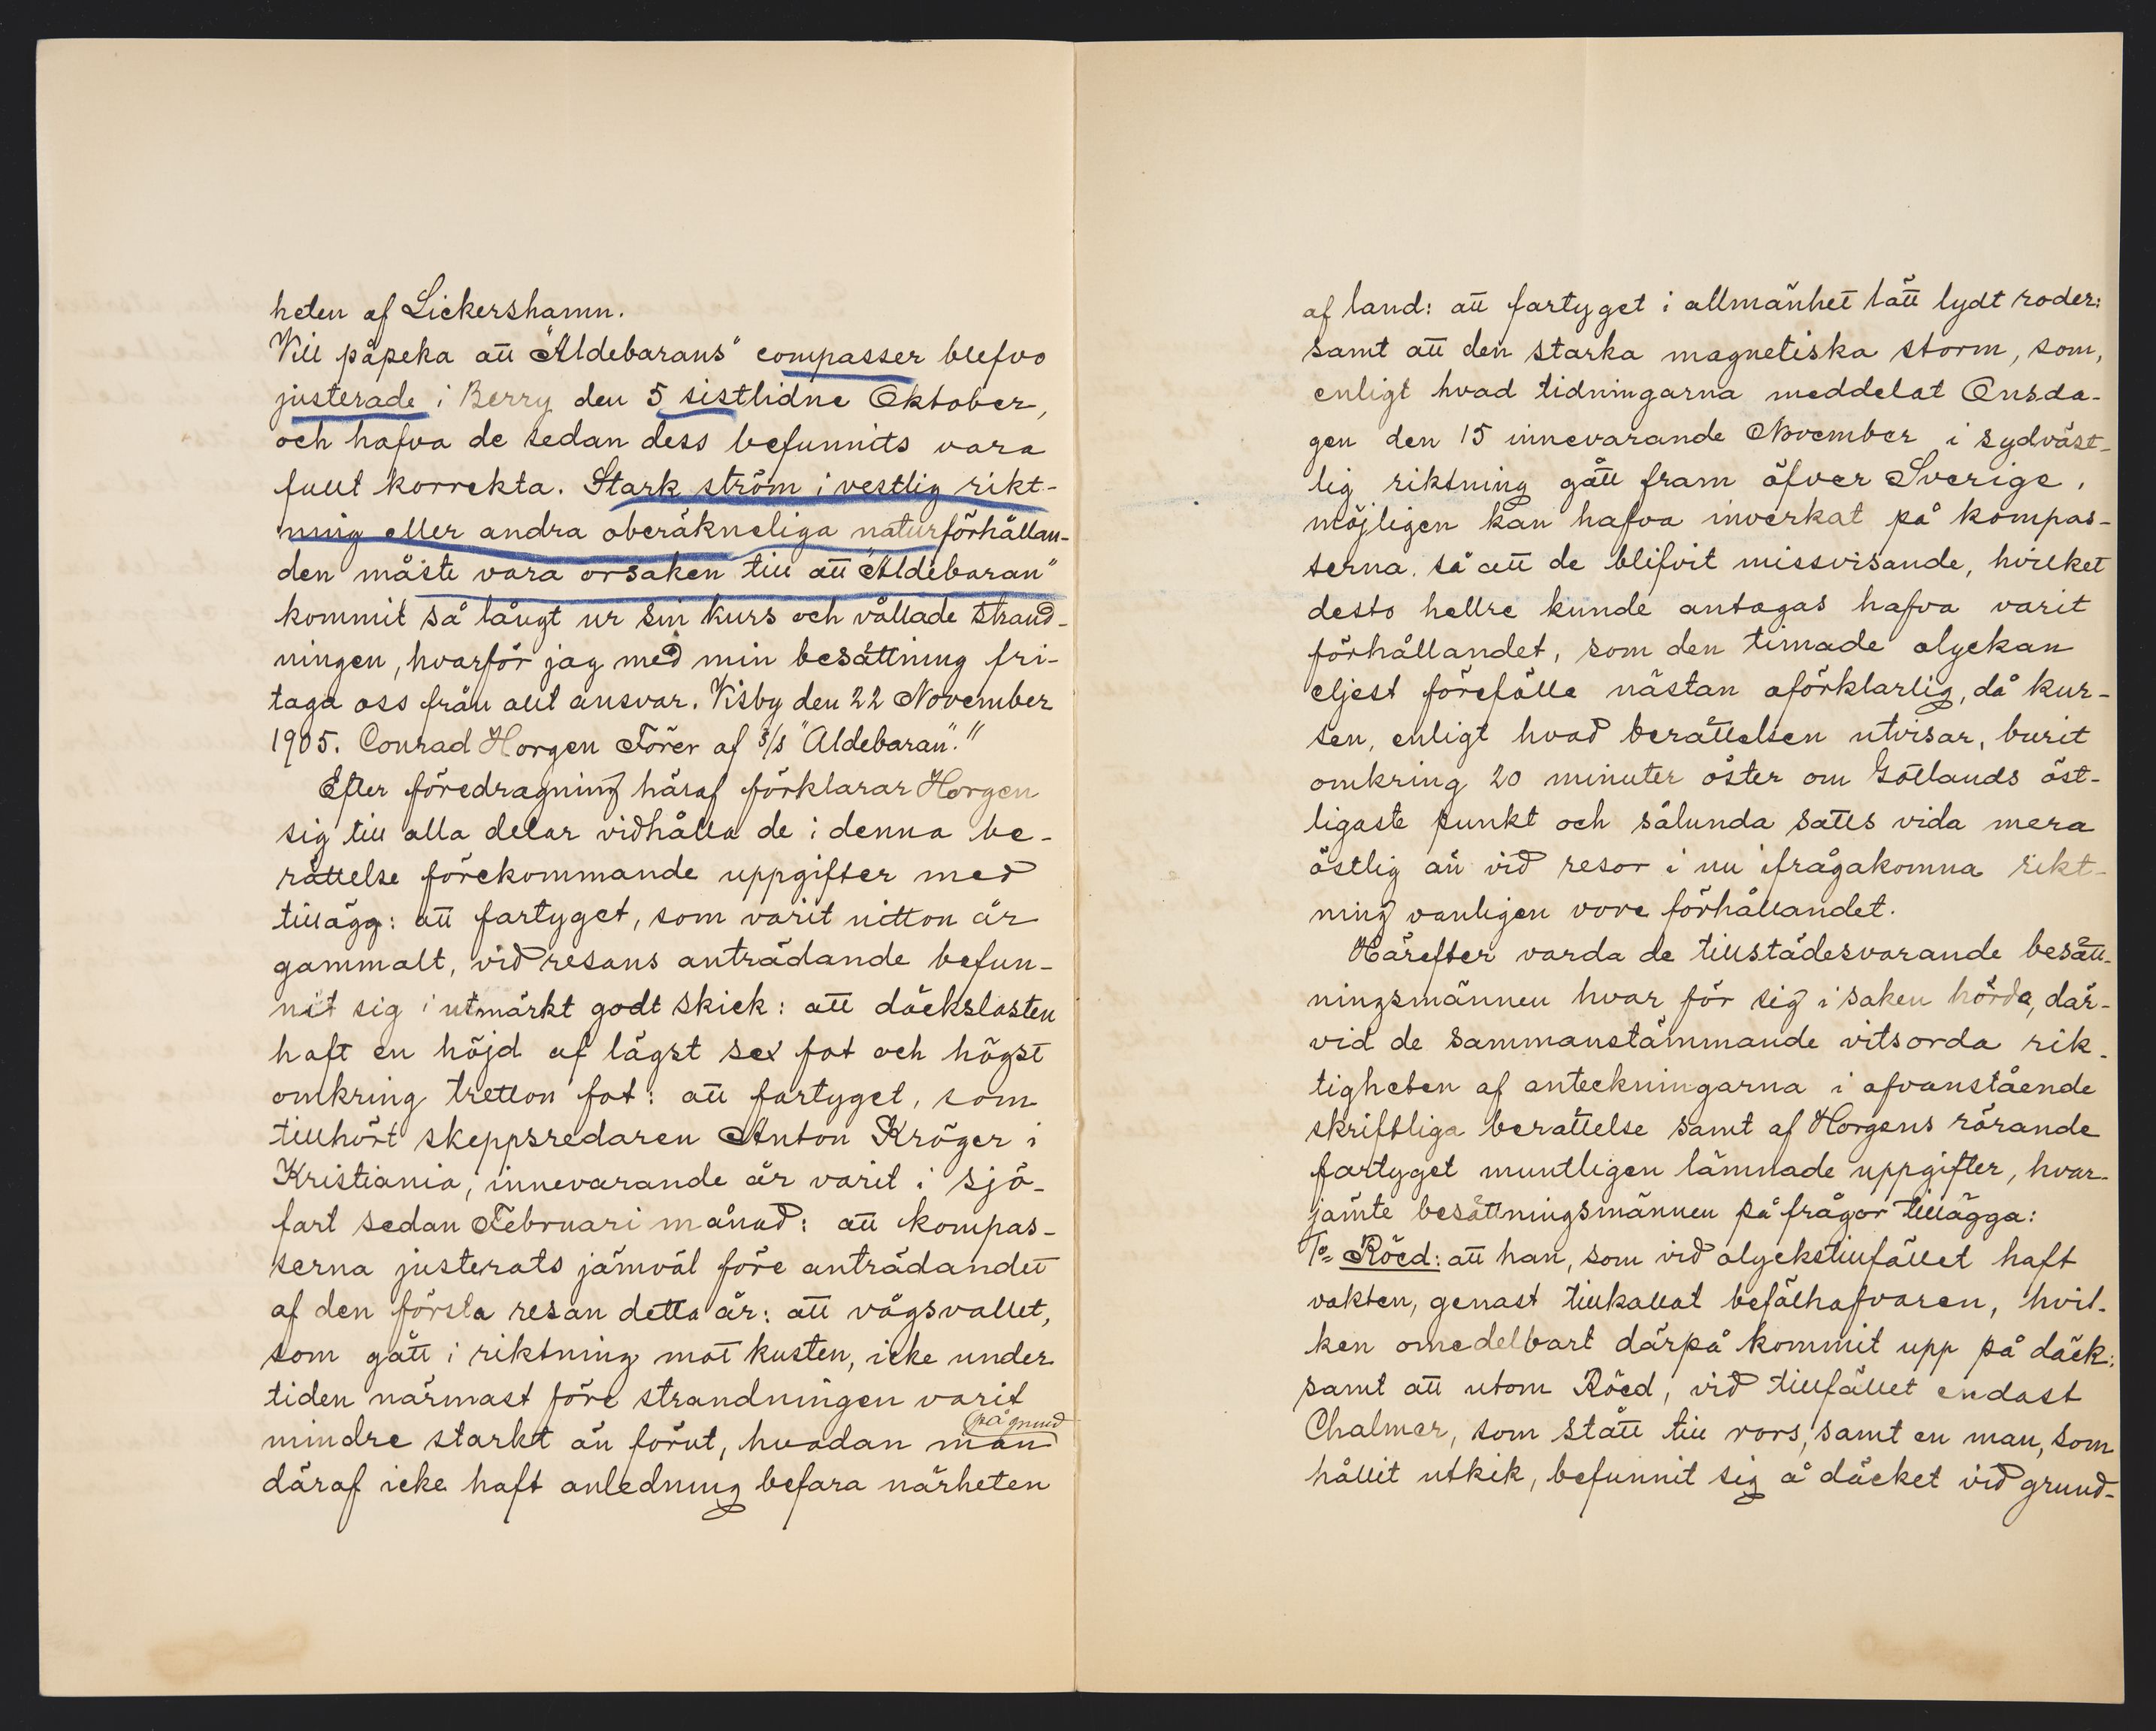 heten af Lickershamn.
Vill påpeka att "Aldebarans" compasser blefvo
justerade i Berry den 5 sistlidne Oktober,
och hafva de sedan dess befunnits vara
fullt korrekta. Stark ström i vestlig rikt-
ning eller andra oberäkneliga naturförhållan-
den måste vara orsaken till att "Aldebaran"
kommit så långt ur sin kurs och vållade strand-
ningen, hvarför jag med min besättning fri-
taga oss från allt ansvar. Visby den 22 November
1905. Conrad Horgen Förer af s/s "Aldebaran"."
Efter föredragning häraf förklarar Horgen
sig till alla delar vidhålla de i denna be-
rättelse förekommande uppgifter med
tillägg: att fartyget, som varit nitton år
gammalt, vid resans anträdande befun-
nit sig i utmärkt godt skick: att däckslasten
haft en höjd af lägst sex fot och högst
omkring tretton fot: att fartyget, som
tillhört skeppsredaren Anton Kröger i
Kristiania, innevarande år varit i sjö-
fart sedan Februari månad: att kompas-
serna justerats jämväl före anträdandet
af den första resan detta år: att vågsvallet,
som gått i riktning mot kusten, icke under
tiden närmast före strandningen varit
mindre starkt än förut, hvadan man på grund
däraf icke haft anledning befara närheten
af land: att fartyget i allmänhet lätt lydt roder:
samt att den starka magnetiska storm, som,
enligt hvad tidningarna meddelat Onsda-
gen den 15 innevarande November i sydväst-
lig riktning gått fram öfver Sverige,
möjligen kan hafva inverkat på kompas-
serna, så att de blifvit missvisande, hvilket
desto hellre kunde antagas hafva varit
förhållandet, som den timade olyckan
eljest förefölle nästan oförklarlig, då kur-
sen, enligt hvad berättelsen utvisar, burit
omkring 20 minuter öster om Gotlands öst-
ligaste punkt och sålunda satts vida mera
östlig än vid resor i nu ifrågakomna rikt-
ning vanligen vore förhållandet.
Härefter varda de tillstädesvarande besätt-
ningsmännen hvar för sig i saken hörda, där-
vid de sammanstämmande vitsorda rik-
tigheten af anteckningarna i ofvanstående
skriftliga berättelse samt af Horgens rörande
fartyget muntligen lämnade uppgifter, hvar-
jämte besättningsmännen på frågor tillägga:
1º= Röed: att han, som vid olyckstillfället haft
vakten, genast tillkallat befälhafvaren, hvil-
ken omedelbart därpå kommit upp på däck:
samt att utom Röed, vid tillfället endast
Chalmer, som stått till rors, samt en man, som
hållit utkik, befunnit sig å däcket vid grund-